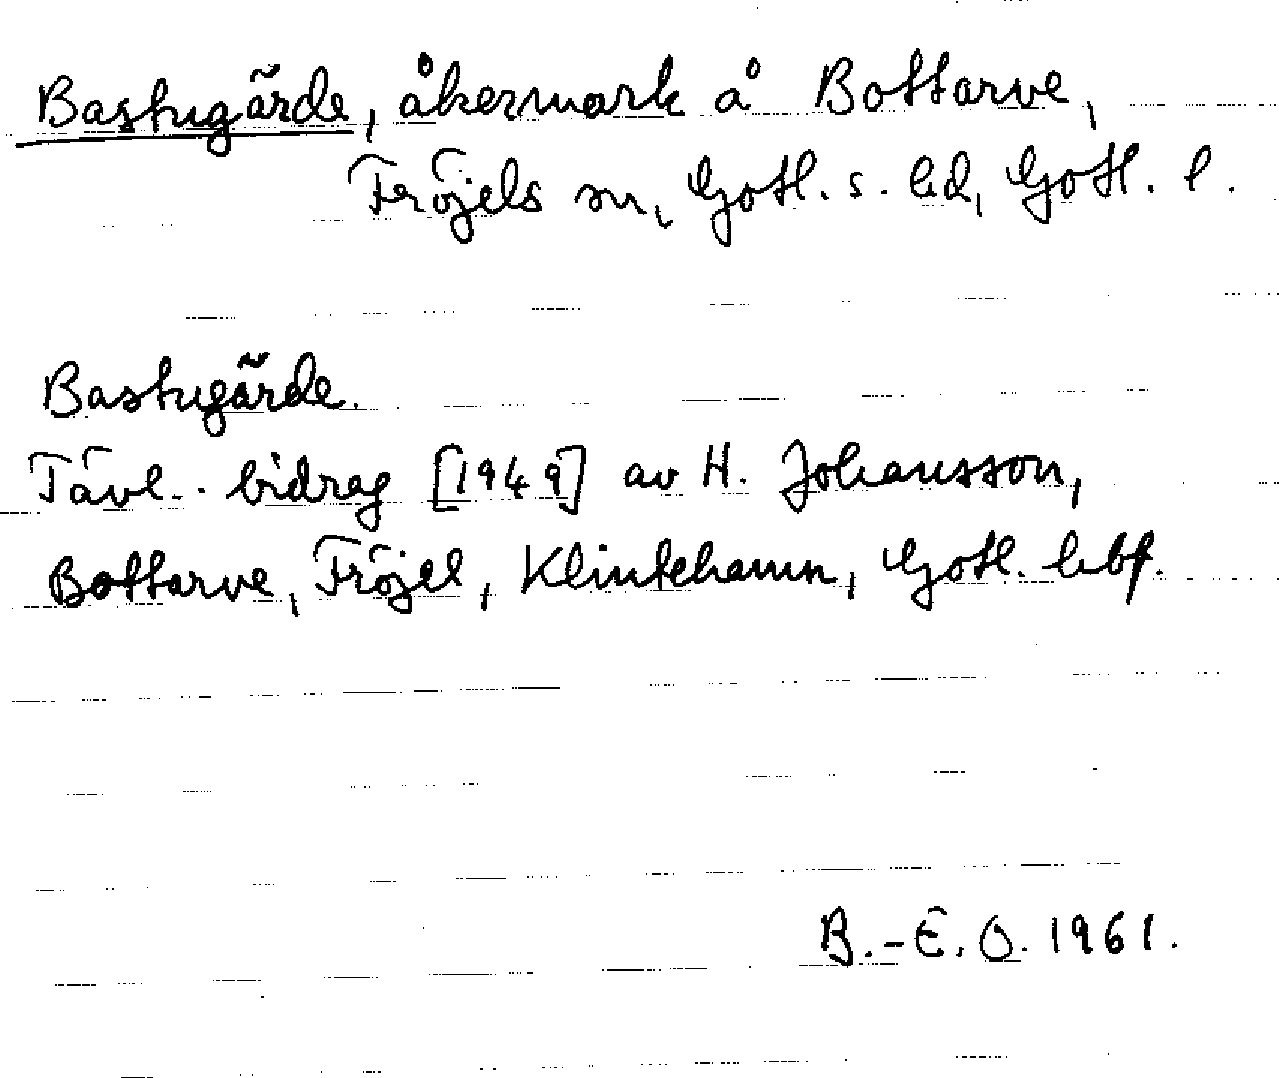 Bastugärde, åkermark å Bottarve,
Fröjels sn, Gotl. s. hd, Gotl. l.
Bastugärde.
Tävl.. bidrag [1949] av H. Johansson,
Bottarve, Fröjel, Klintehamn, Gotl. hbf.
B.-E. O. 1961.